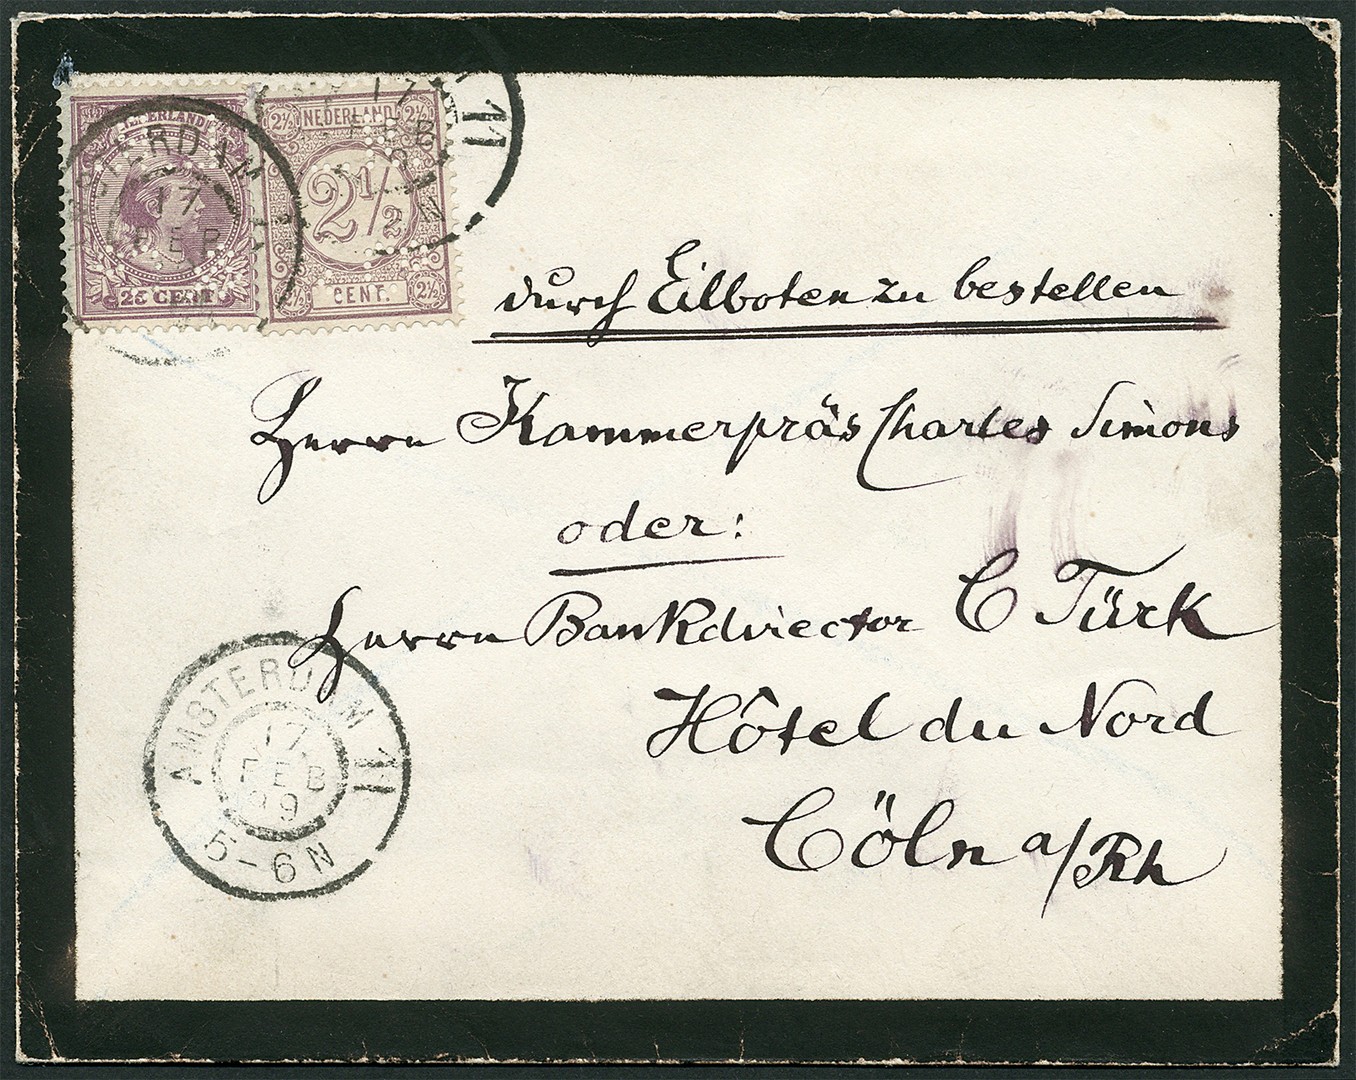 NEDERLAND
25 CENT
AMSTERDAM
17
FEB
2½ 2½
NEDERLAND
2½
2½ 2½
CENT.
17
FEB
11
N
durch Eilboten zu bestellen
Herrn Kammerpräs Charles Simons
oder:
Herrn Bankdirector C Türk
Hôtel du Nord
Cöln a/Rh
AMSTERDAM 11
17
FEB
99
5-6N